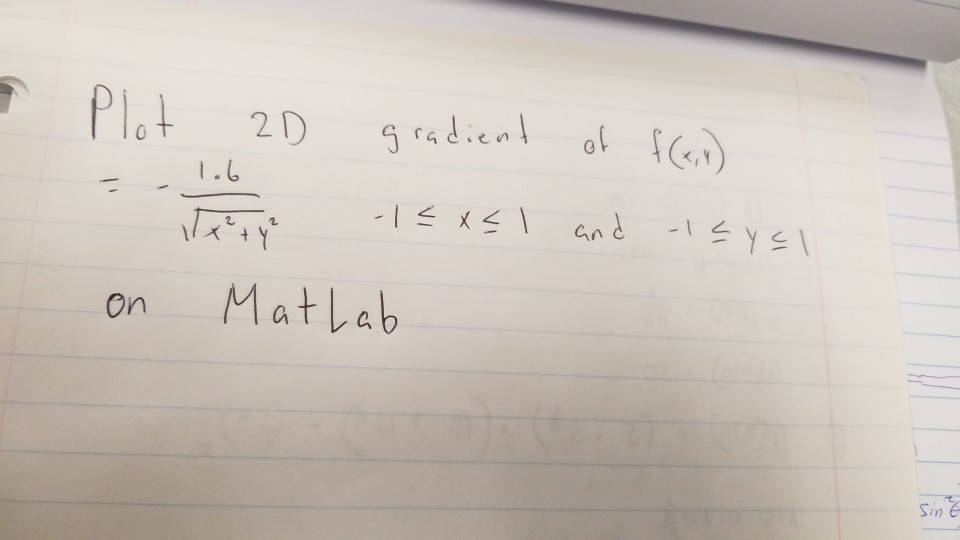 Plot 2D gradient of f(x,y)
= - 1.6 / √(x² + y²)   -1 ≤ x ≤ 1 and -1 ≤ y ≤ 1
on MatLab
sin²θ